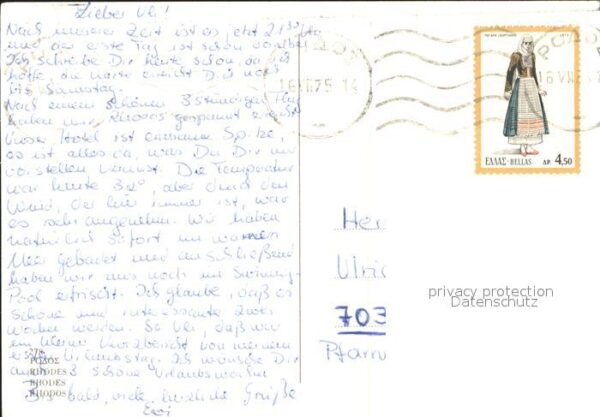 Lieber Uli!
Nach unserer Zeit ist es jetzt 21³⁰ Uhr
und der erste Tag ist schon vorüber
Ich schreibe Dir heute schon, da ich
hoffe, die Karte erreicht Dich noch
bis Samstag.
Nach einem schönen 3stündigen Flug
haben wir Rhodos gespannt erreicht
Unser Hotel ist einsame Spitze,
es ist alles da, was Du Dir nur
vorstellen kannst. Die Temperatur
war heute 32°, aber durch den
Wind, der hier immer ist, war
es sehr angenehm. Wir haben
natürlich sofort im warmen
Meer gebadet und anschließend
haben wir uns noch im Swimming-
Pool erfrischt. Ich glaube, daß es
schöne und interessante zwei
Wochen werden. So Uli, daß war
ein kleiner Kurzbericht von meinem
ersten Urlaubstag. Ich wünsche Dir
auch 3 schöne Urlaubswochen
Bis bald, viele herzliche Grüße
276
ΡΟΔΟΣ
RHODES
RHODES
RHODOS
ΡΟΔΟΣ
16 VII 75 14
ΡΟΔΟΣ
16 VII 75
ΕΛΛΑΣ-HELLAS ΔΡ 4,50
Her
Ulric
703
Pfarrw
privacy protection
Datenschutz